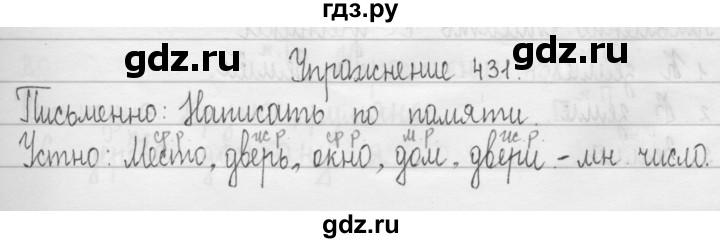 гдз.ру
gdz.ru gdz.ru
Упражнение 431.
Письменно: Написать по памяти.
ср.р. ж.р. ср.р. м.р. ж.р.
Устно: Место, дверь, окно, дом, двери - мн. число.
gdz.ru gdz.ru